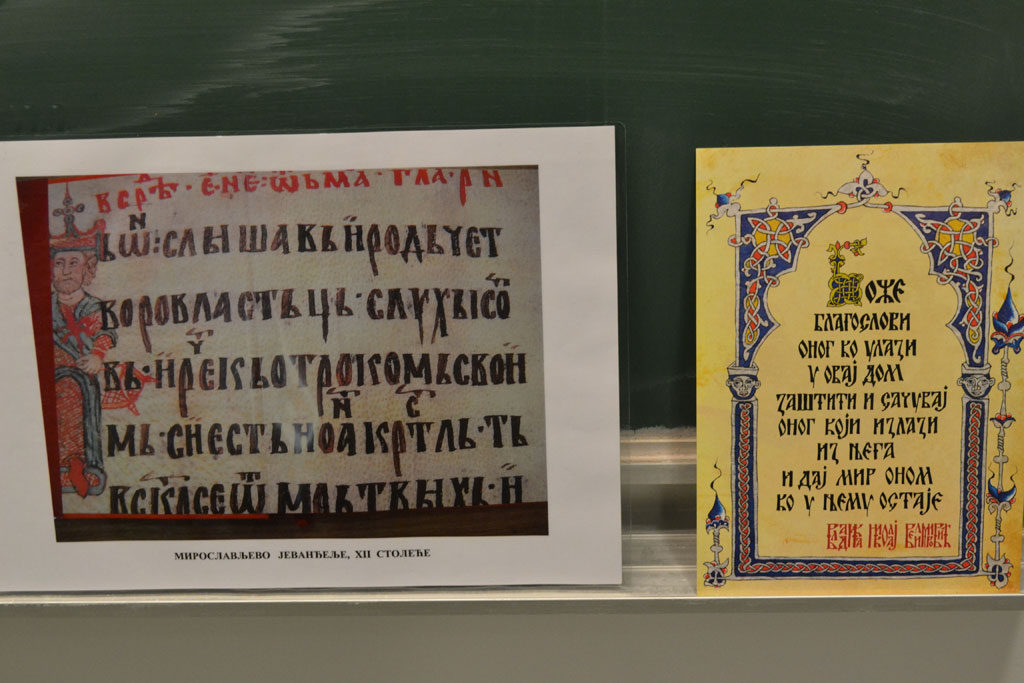 ВСРѢ · Є · НЕ : ѾЪМА · ГЛА · РИ
ЬѾ : СЛЫШАВЪ Н РОДЬ ЧЕТ
ВОРОВЛАСТЬЦЬ · СЛУХЬ ІСО
ВЬ · Н РЕІКЬ ОТРОІКОМЬ СВОИ
МЬ · СН ЕСТЬ НОА КРТЛЬ · ТЬ
МИРОСЛАВЉЕВО ЈЕВАНЂЕЉЕ, XII СТОЛЕЋЕ
БОЖЕ
БЛАГОСЛОВИ
ОНОГ КО УЛАЗИ
У ОВАЈ ДОМ
ЗАШТИТИ И САЧУВАЈ
ОНОГ КОЈИ ИЗЛАЗИ
ИЗ ЊЕГА
И ДАЈ МИР ОНОМ
КО У ЊЕМУ ОСТАЈЕ